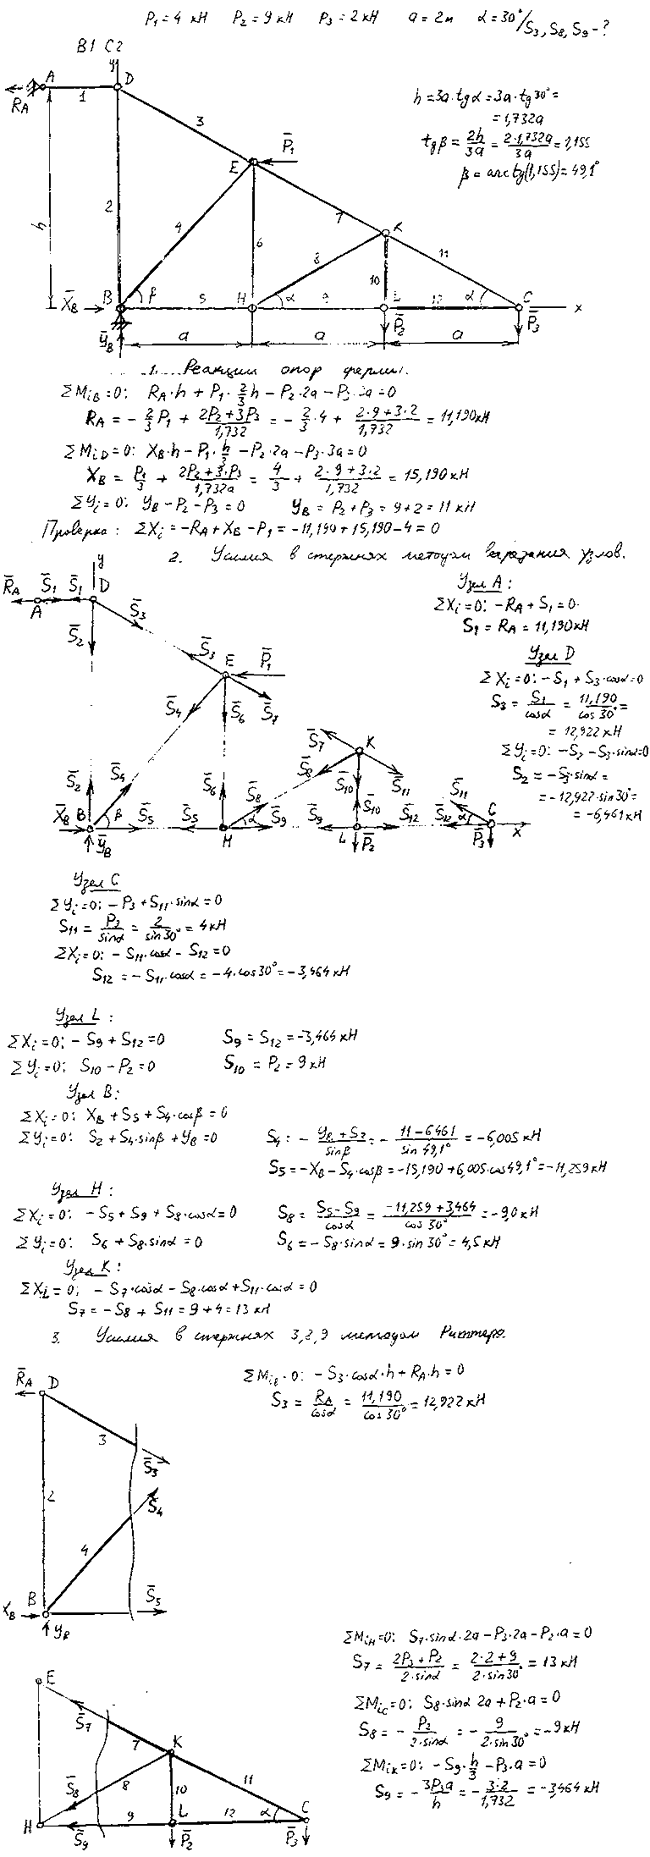 P₁=4 кН P₂=9 кН P₃=2 кН a=2м α=30°/S₃, S₈, S₉-?
B1 C2
y
A
D
R̄_A
1
h=3a·tgα=3a·tg30°=
=1,732a
tgβ=2h/3a=2·1,732a/3a=1,155
β=arctg(1,155)=49,1°
3
E
P̄₁
2
4
6
7
K
h
8
10
11
X̄_B
B
β
5
H
α
9
L
12
α
C
x
Ȳ_B
a
a
P̄₂
a
P̄₃
1. Реакции опор фермы.
ΣM_iB=0: R_A·h+P₁·2/3h-P₂·2a-P₃·3a=0
R_A=-2/3P₁+(2P₂+3P₃)/1,732=-2/3·4+(2·9+3·2)/1,732=11,190кН
ΣM_iD=0: X_B·h-P₁·h/3-P₂·2a-P₃·3a=0
X_B=P₁/3+(2P₂+3·P₃)/1,732a=4/3+(2·9+3·2)/1,732=15,190 кН
ΣY_i=0: Y_B-P₂-P₃=0 Y_B=P₂+P₃=9+2=11 кН
Проверка: ΣX_i=-R_A+X_B-P₁=-11,190+15,190-4=0
2. Усилия в стержнях методом вырезания узлов.
y
R̄_A S̄₁ S̄₁ D
A
S̄₃
S̄₂
S̄₃ E P̄₁
S̄₄ S̄₆ S̄₇
S̄₇ K
S̄₂ S̄₄ S̄₆ S̄₈ S̄₈ S̄₁₀ S̄₁₁ S̄₁₁
S̄₁₀
X̄_B B β S̄₅ S̄₅ H α S̄₉ S̄₉ L S̄₁₂ S̄₁₂ α C x
Ȳ_B P̄₂ P̄₃
Узел A:
ΣX_i=0: -R_A+S₁=0
S₁=R_A=11,190кН
Узел D
ΣX_i=0: -S₁+S₃·cosα=0
S₃=S₁/cosα=11,190/cos30°=
=12,922 кН
ΣY_i=0: -S₂-S₃·sinα=0
S₂=-S₃·sinα=
=-12,922·sin30°=
=-6,461кН
Узел C
ΣY_i=0: -P₃+S₁₁·sinα=0
S₁₁=P₃/sinα=2/sin30°=4кН
ΣX_i=0: -S₁₁·cosα-S₁₂=0
S₁₂=-S₁₁·cosα=-4·cos30°=-3,464 кН
Узел L:
ΣX_i=0: -S₉+S₁₂=0 S₉=S₁₂=-3,464кН
ΣY_i=0: S₁₀-P₂=0 S₁₀=P₂=9кН
Узел B:
ΣX_i=0: X_B+S₅+S₄·cosβ=0
ΣY_i=0: S₂+S₄·sinβ+Y_B=0 S₄=-(Y_B+S₂)/sinβ=-(11-6,461)/sin49,1°=-6,005кН
S₅=-X_B-S₄·cosβ=-15,190+6,005·cos49,1°=-11,259кН
Узел H:
ΣX_i=0: -S₅+S₉+S₈·cosα=0 S₈=(S₅-S₉)/cosα=(-11,259+3,464)/cos30°=-9,0кН
ΣY_i=0: S₆+S₈·sinα=0 S₆=-S₈·sinα=9·sin30°=4,5кН
Узел K:
ΣX_i=0: -S₇·cosα-S₈·cosα+S₁₁·cosα=0
S₇=-S₈+S₁₁=9+4=13кН
3. Усилия в стержнях 3,8,9 методом Риттера.
R̄_A D
3
S̄₃
2
S̄₄
4
B
S̄₅
X_B
Y_B
ΣM_iB=0: -S₃·cosα·h+R_A·h=0
S₃=R_A/cosα=11,190/cos30°=12,922кН
E
S̄₇
7
K
S̄₈ 8 10 11
H S̄₉ 9 L 12 α C
P̄₂ P̄₃
ΣM_iH=0: S₇·sinα·2a-P₃·2a-P₂·a=0
S₇=(2P₃+P₂)/2·sinα=(2·2+9)/2·sin30°=13кН
ΣM_iC=0: S₈·sinα·2a+P₂·a=0
S₈=-P₂/2·sinα=-9/2·sin30°=-9кН
ΣM_iK=0: -S₉·h/3-P₃·a=0
S₉=-3P₃a/h=-3·2/1,732=-3,464кН